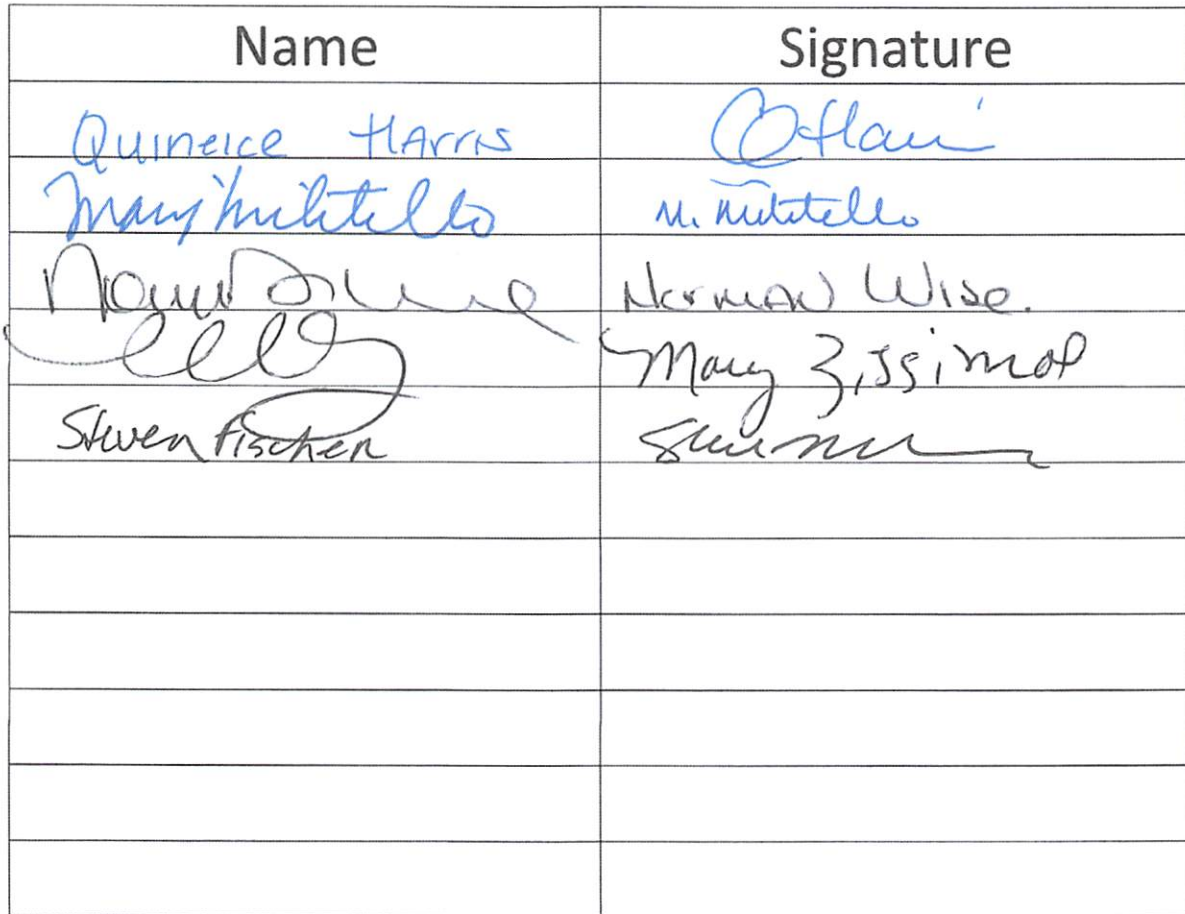 Name Signature
Quineice Harris Q Harris
Mary Militello M. Militello
Norman Wise.
Mary
Steven Fischer